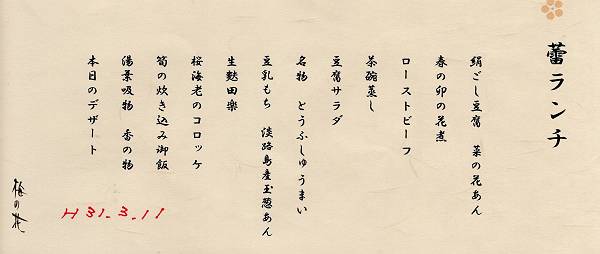 蕾ランチ
絹ごし豆腐 菜の花あん
春の卯の花煮
ローストビーフ
茶碗蒸し
豆腐サラダ
名物 とうふしゅうまい
豆乳もち 淡路島産玉葱あん
生麩田楽
桜海老のコロッケ
筍の炊き込み御飯
湯葉吸物 香の物
本日のデザート
梅の花
H31.3.11